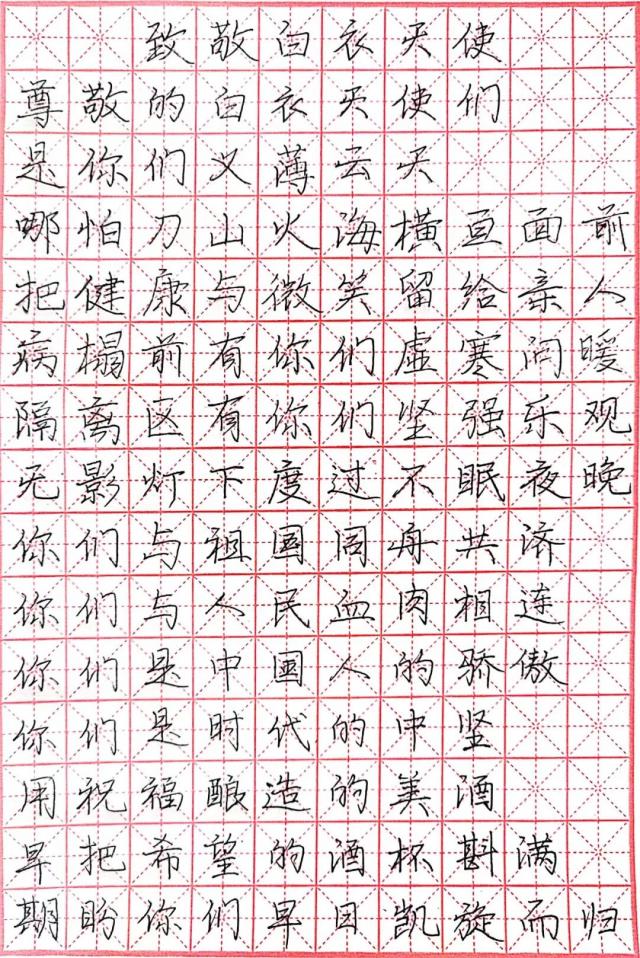 致敬白衣天使
尊敬的白衣天使们
是你们义薄云天
哪怕刀山火海横亘面前
把健康与微笑留给亲人
病榻前有你们虚寒问暖
隔离区有你们坚强乐观
无影灯下度过不眠夜晚
你们与祖国同舟共济
你们与人民血肉相连
你们是中国人的骄傲
你们是时代的中坚
用祝福酿造的美酒
早把希望的酒杯斟满
期盼你们早日凯旋而归